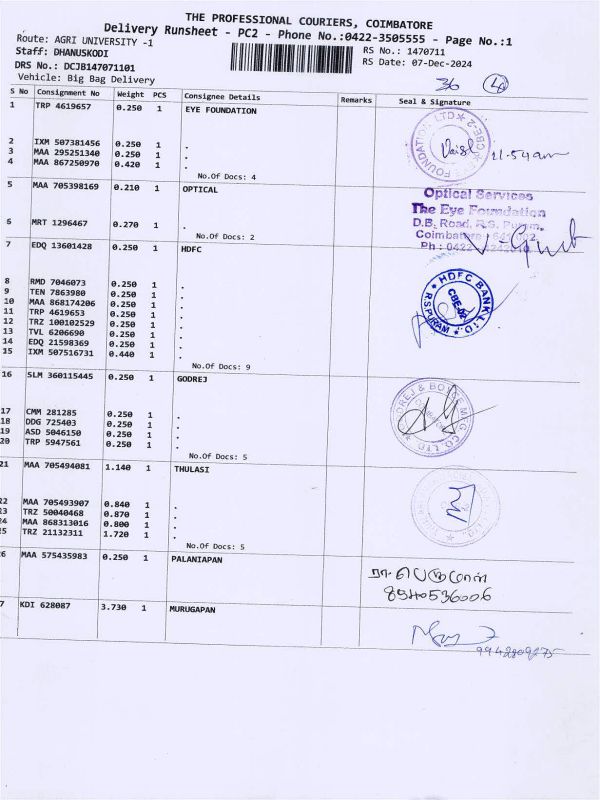 THE PROFESSIONAL COURIERS, COIMBATORE
Delivery Runsheet - PC2 - Phone No.:0422-3505555 - Page No.:1
Route: AGRI UNIVERSITY -1
RS No.: 1470711
Staff: DHANUSKODI
RS Date: 07-Dec-2024
DRS No.: DCJB147071101
Vehicle: Big Bag Delivery
36
S No Consignment No Weight PCS Consignee Details Remarks Seal & Signature
1 TRP 4619657 0.250 1 EYE FOUNDATION
2 IXM 507381456 0.250 1 .
3 MAA 295251340 0.250 1 .
4 MAA 867250970 0.420 1 .
11.54am
No.Of Docs: 4
5 MAA 705398169 0.210 1 OPTICAL
Optical Services
The Eye Foundation
D.B. Road, R.S. Puram,
Coimbatore
Ph : 0422
6 MRT 1296467 0.270 1 .
No.Of Docs: 2
7 EDQ 13601428 0.250 1 HDFC
HDFC BANK LTD
RSPURAM
8 RMD 7046073 0.250 1 .
9 TEN 7863980 0.250 1 .
10 MAA 868174206 0.250 1 .
11 TRP 4619653 0.250 1 .
12 TRZ 100102529 0.250 1 .
13 TVL 6206690 0.250 1 .
14 EDQ 21598369 0.250 1 .
15 IXM 507516731 0.440 1 .
No.Of Docs: 9
16 SLM 360115445 0.250 1 GODREJ
17 CMM 281285 0.250 1 .
18 DDG 725403 0.250 1 .
19 ASD 5046150 0.250 1 .
20 TRP 5947561 0.250 1 .
No.Of Docs: 5
21 MAA 705494081 1.140 1 THULASI
22 MAA 705493907 0.840 1 .
23 TRZ 50040468 0.870 1 .
24 MAA 868313016 0.800 1 .
25 TRZ 21132311 1.720 1 .
No.Of Docs: 5
6 MAA 575435983 0.250 1 PALANIAPAN
ரா.பெருமாள்
8540536006
7 KDI 628087 3.730 1 MURUGAPAN